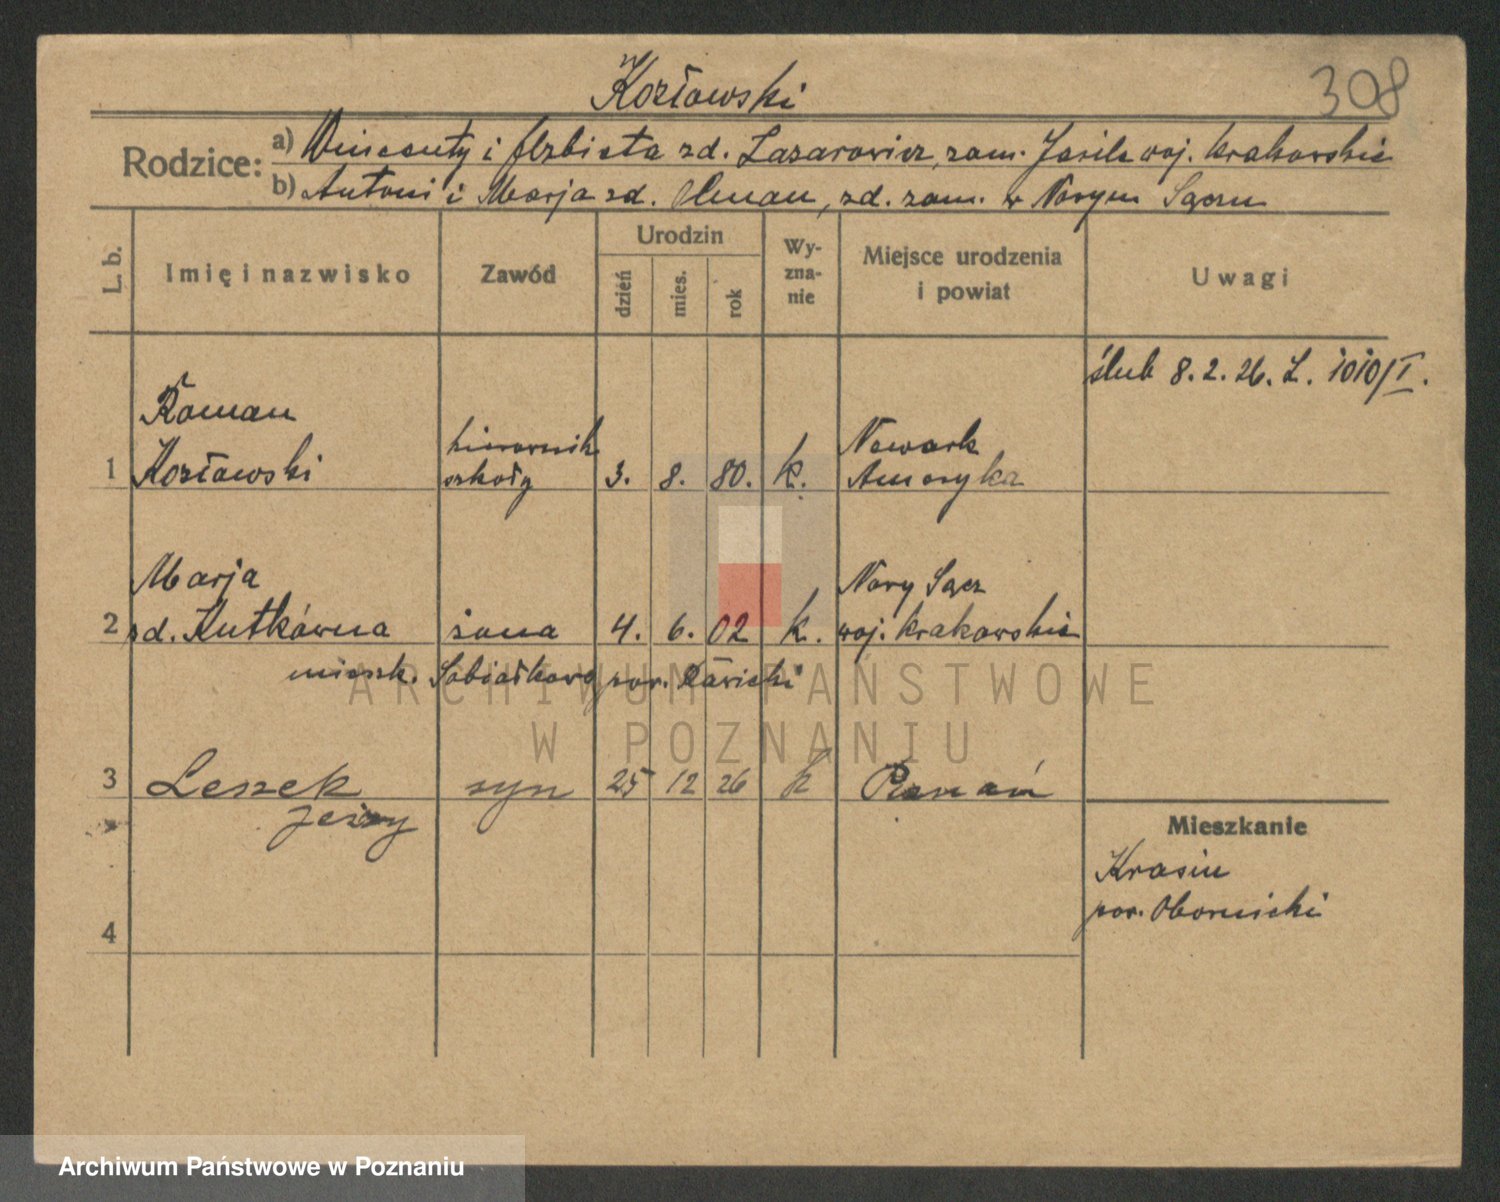 Kozłowski
308
Rodzice: a) Wincenty i Elżbieta zd. Lazarowicz, zam. Jaśle woj. krakowskie
b) Antoni i Marja zd. Olman, zd. zam. w Nowym Sączu
L. b.
Imię i nazwisko
Zawód
Urodzin
dzień
mies.
rok
Wy-
zna-
nie
Miejsce urodzenia
i powiat
Uwagi
ślub 8. 2. 26. L. 1010/I.
Roman
1 Kozłowski
kierownik
szkoły
3. 8. 80. k.
Newark
Ameryka
Marja
2 zd. Kutkówna żona 4. 6. 02 k.
Nowy Sącz
woj. krakowskie
mieszk. Sobiałkowo pow. Rawicki
3 Leszek syn 25 12 26 k Poznań
Jerzy
Mieszkanie
Krasin
pow. Obornicki
4
ARCHIWUM PAŃSTWOWE
W POZNANIU
Archiwum Państwowe w Poznaniu